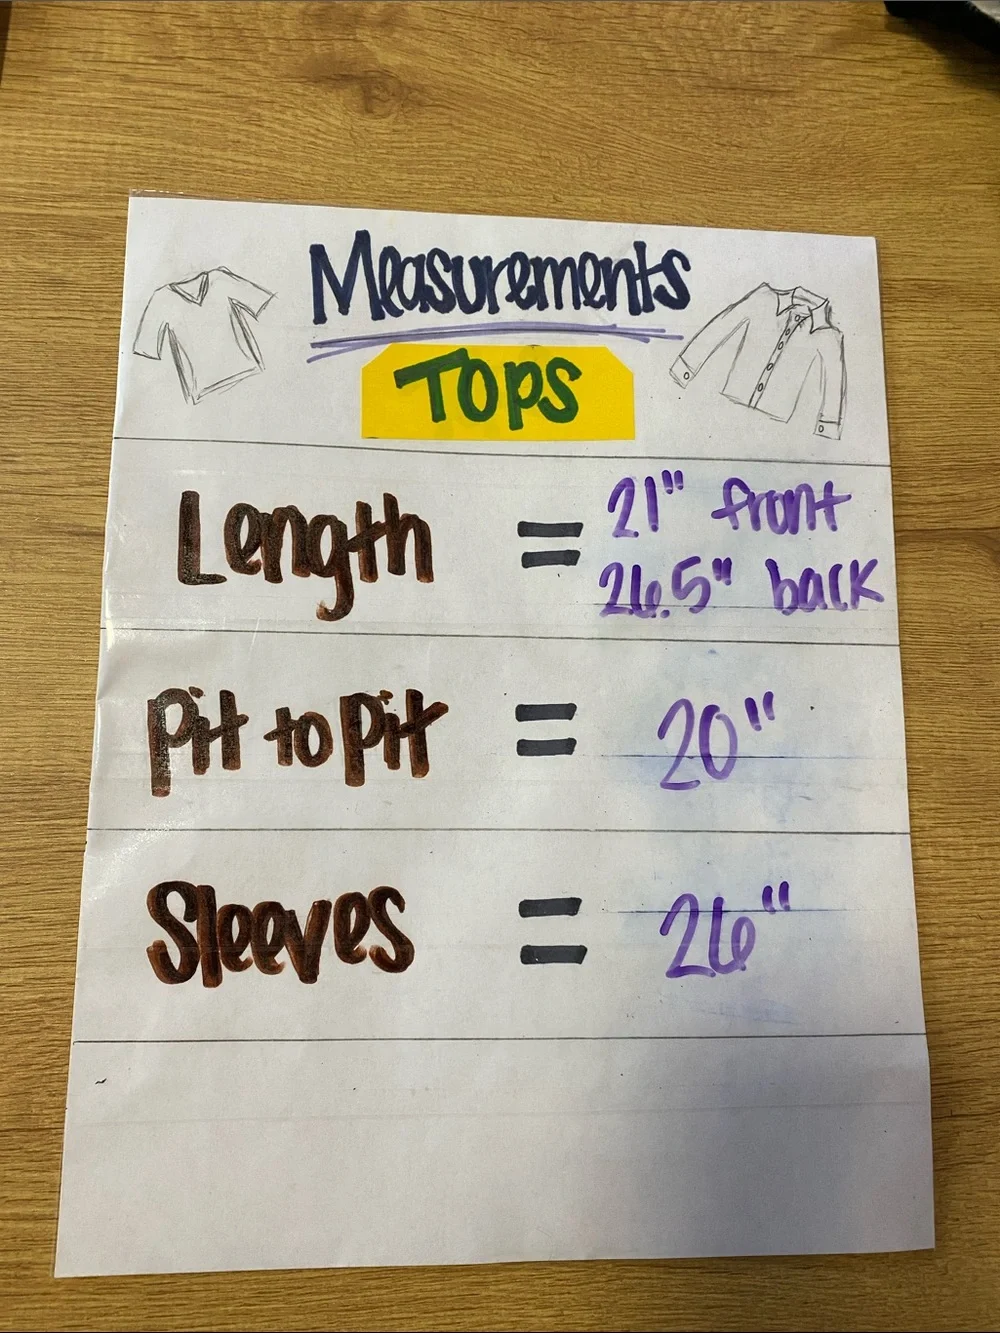 Measurements
Tops
Length = 21" front
26.5" back
Pit to Pit = 20"
Sleeves = 26"